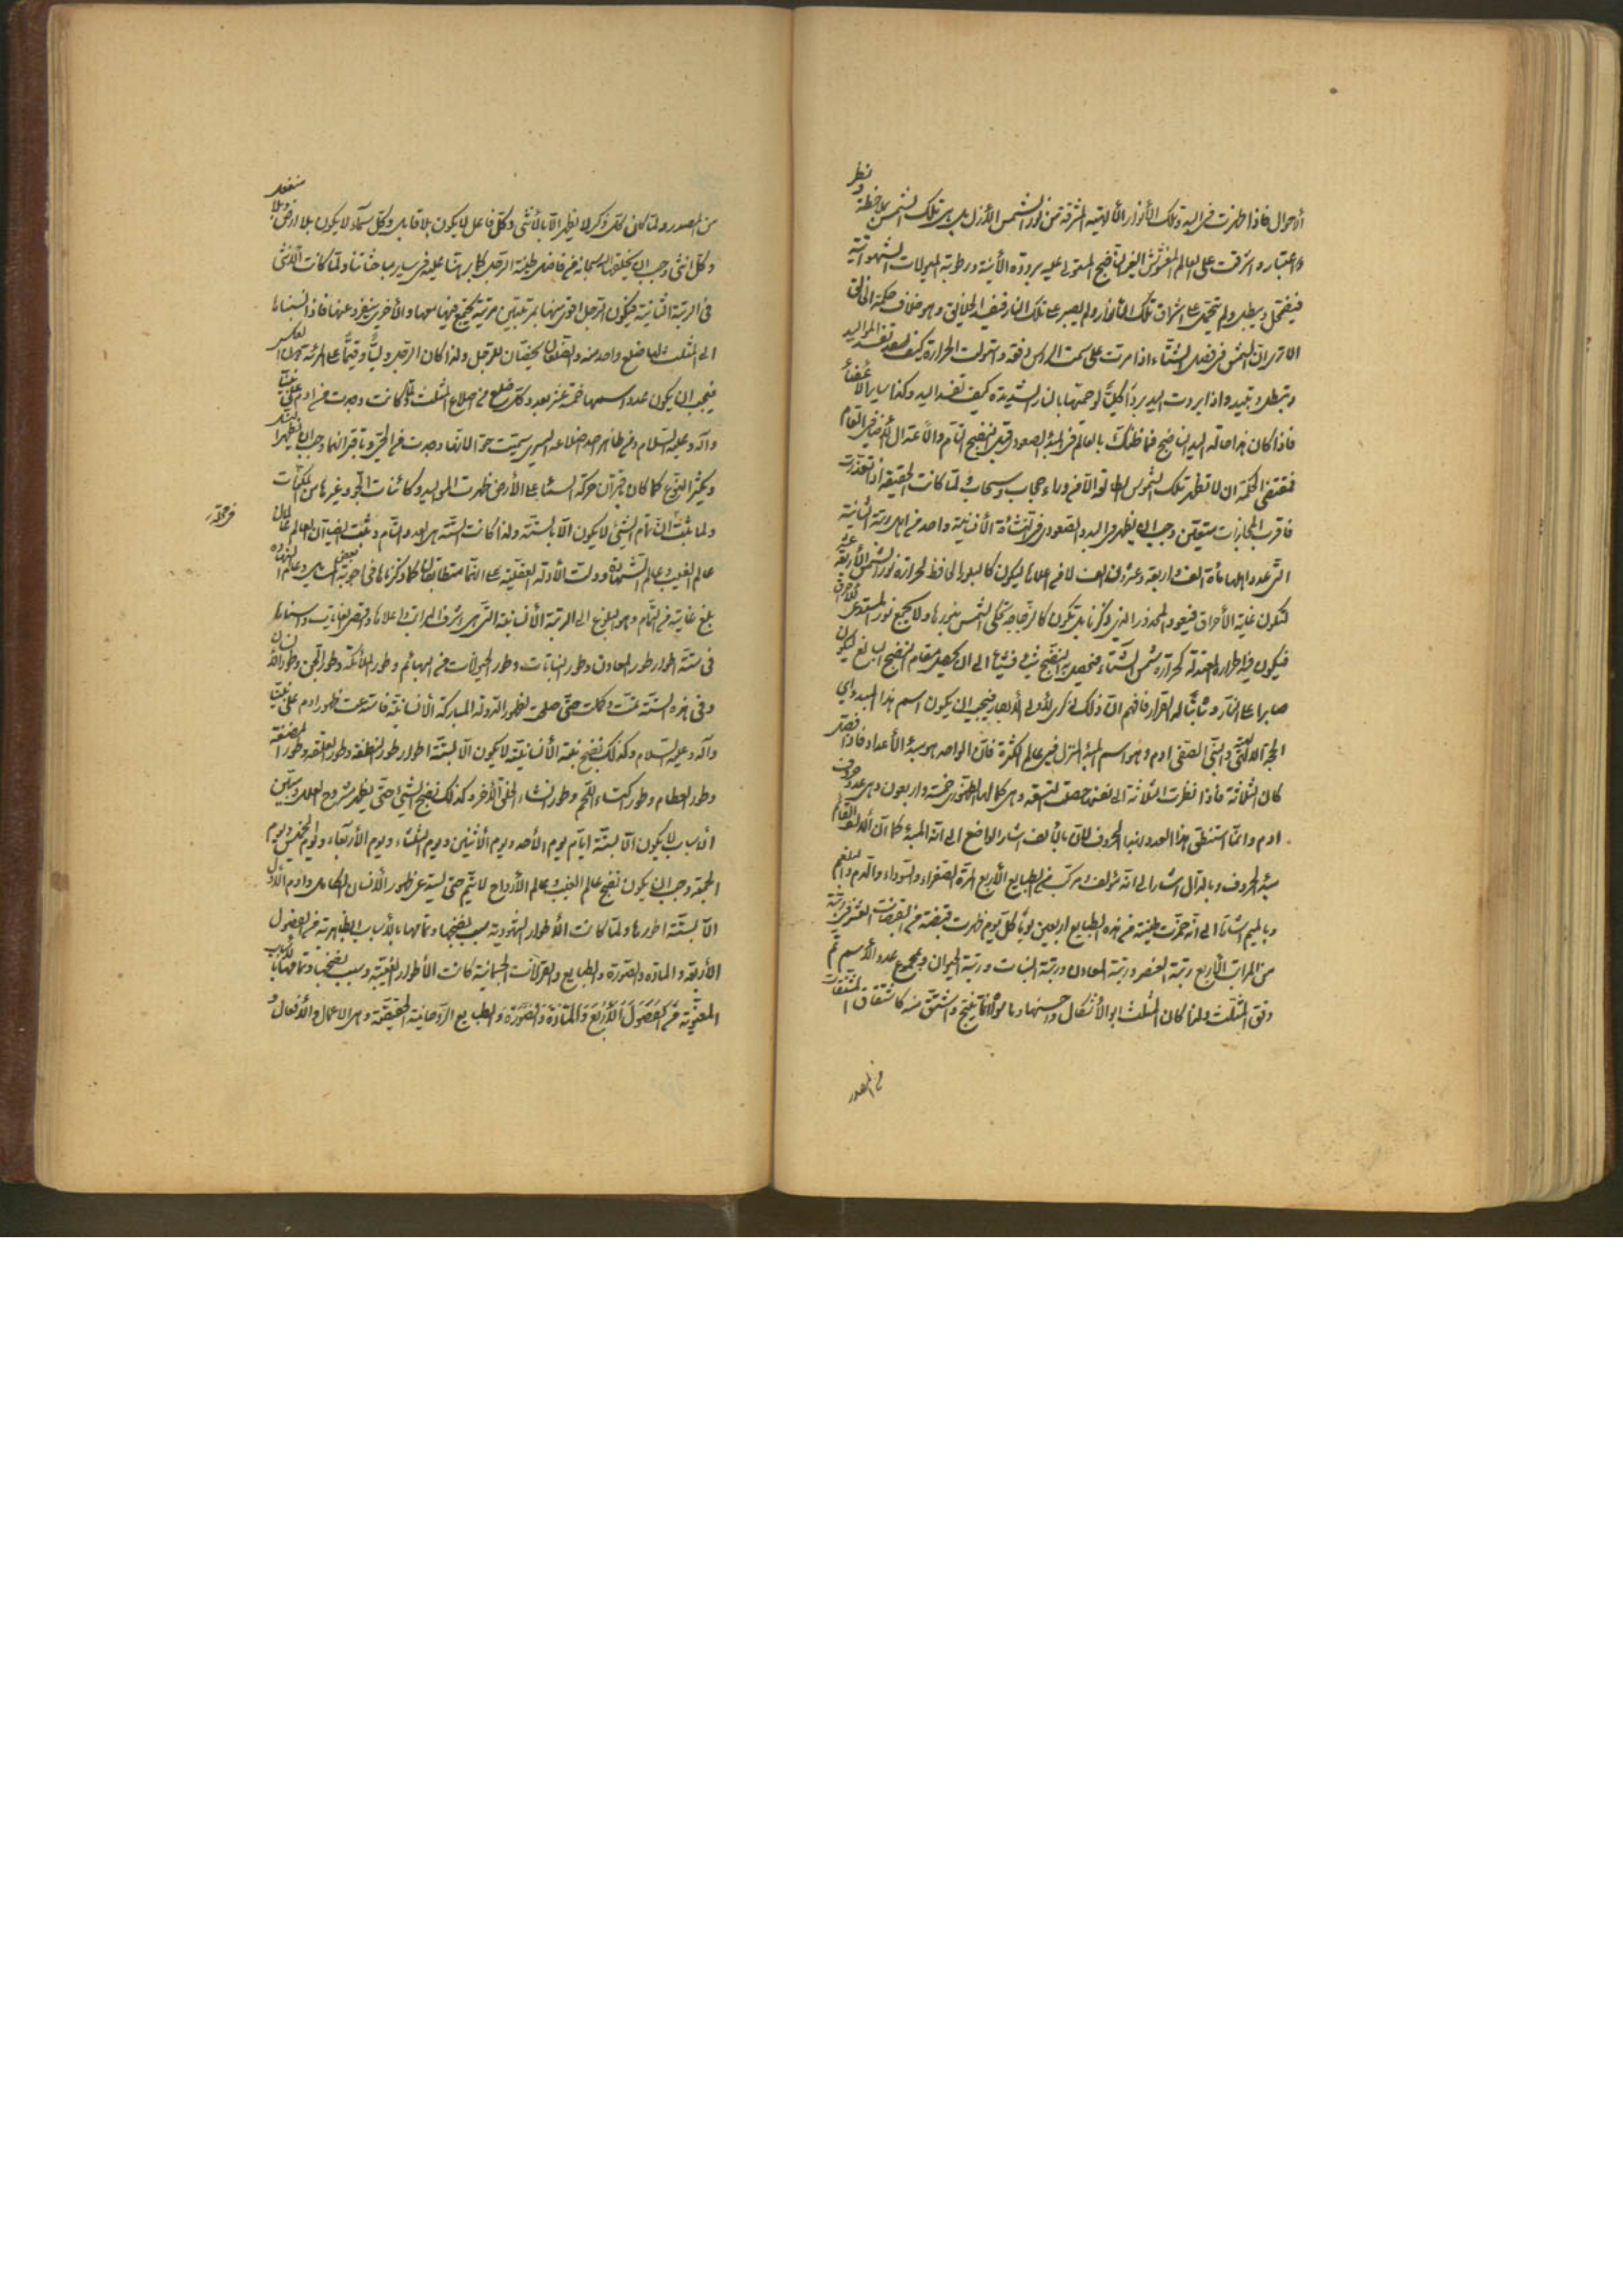 الأحوال فاذا ظهرت في البدء تلك الأنوار الألهية المشرقة من نور الشمس الأزل بل هي تلك الشمس بملاحظة ونظر
واعتبار واشرقت على العالم الغير الناضج المستولي عليه برودة الأنية ورطوبة الميولات الشهوانية
فيضمحل ويبطل ولم يتحمل اشراق تلك الأنوار ولم يصبر على تلك النار فيفسد الخلائق وهو خلاف حكمة الخالق
الا ترى ان الشمس في فصل الشتاء اذا مرت على سمت الرأس دفعة واستولت الحرارة كيف تفسد المواليد
وتبطل وتبيد واذا بردت اليد بردا كليا لو حميتها بالنار الشديدة كيف تفسد اليد وكذا ساير الأعضاء
فاذا كان هذا حالة اليد الناضج فما ظنك بالعالم في المبدء الصعودي قبل النضج التام والأعتدال العام
فمقتضى الحكمة ان لا تظهر تلك الشموس الطالعة الا من وراء حجاب وسحاب ولما كانت الحقيقة اذا تعذرت
فأقرب المجازات متعين وجب ان يظهر في البدء الصعودي في النشأة الأنسانية واحد من اهل الرتبة الثانية
التي عدد اهلها مأة الف واربعة وعشرون الف لا من اعلاها ليكون كالبلور الحافظ لحرارة نور الشمس الأربعة عشر
لتكون غلبة الأحراق فيعود المحذور الذي ذكرنا بل تكون كالزجاجة تحكي الشمس بنورها ولا يجمع نور المستدعي للاحراق
فيكون فيه حرارة معتدلة كحرارة شمس الشتاء فيحصل به النضج شيئا فشيئا الى ان يحصل مقام النضج البالغ ليكون
صابرا على النار وثابتا له القرار فافهم ان ذلك لذكرى لأولي الأبصار فيجب ان يكون اسم هذا المبدء
آدم وهو اسم المبدء المنزل في عالم الكثرة فان الواحد هو مبدء الأعداد فاذا تنزل
كان الثلاثة فاذا نظرت الثلاثة الى نفسها حصلت التسعة وهي كمالها الظهوري خمسة واربعون وهي عدد حروف
ادم وانما استنطق هذا العدد بهذا الحروف لأن بالألف اشار الواضع الى انه المبدء كما ان الألف
مبدء الحروف وبالدال اشار الى انه مؤلف ومركب من الطبايع الأربع المرة الصفراء والسوداء والدم والبلغم
وبالميم اشار الى انه خمرت طينته من هذه الطبايع اربعين يوما كل يوم ظهرت قبضة من القبضات العشر في رتبة
من المراتب الأربع رتبة العنصر ورتبة المعادن ورتبة النبات ورتبة الحيوان ومجموع عدد الأسم تم
وفق المثلث ولذا كان المثلث ابو الأشكال
من المصدر
من المصدر ولما كان كل ذكر لا يظهر الا بالأنثى وكل فاعل لا يكون بلا قابل وكل سماء لا يكون بلا ارض
وكل انثى وجب ان يخلق الله سبحانه من فاضل طينة الرجل كما برهنا عليه في ساير مباحثاتنا ولما كانت الأنثى
في الرتبة الثانية فيكون الرجل اقوى منها بمرتبتين مرتبة يجتمع فيها معها والأخرى ينفرد عنها فاذا نسبناها
الى المثلث لها ضلع واحد منه والضلعان يختصان للرجل ولذا كان الرجل وليا وقيما على المرئة
فيجب ان يكون عدد اسمها خمسة عشر بعدد كل ضلع من اضلاع المثلث ولما كانت وجدت من ادم على نبينا
وآله وعليه السلام ومن ظاهر احد اضلاعه اليسرى سميت حوا لانها وجدت من الحي وباقترانهما وجب ان يظهر
ويكثر النوع كما كان باقتران حركة السماء على الأرض ظهرت المواليد وكائنات الجو وغيرها من المكونات
ولما ثبت ان تمام الشيئ لا يكون الا بالستة ولذا كانت الستة هي العدد التام وثبت ايضا ان العالم عالمان
عالم الغيب وعالم الشهادة ودلت الأدلة العقلية على انهما متطابقان كما ذكرناها في اجوبة بعض المسائل وعالم الشهادة
بلغ غايته في التمام وهو البلوغ الى الرتبة الأنسانية التي هي اشرف المراتب واعلاها واقصى الغايات واسناها
في ستة اطوار طور المعادن وطور النباتات وطور الحيوانات من البهائم وطور الملائكة وطور الجن وطور الأنسان
وفي هذه الستة تمت وكملت حتى صلحت لظهور الذرية المباركة الأنسانية فاستدعت ظهور ادم على نبينا
وآله وعليه السلام وكذلك نضج بنية الأنسانية لا يكون الا بستة اطوار طور النطفة وطور العلقة وطور المضغة
وطور العظام وطور اكتساء اللحم وطور انشاء الخلق الآخر وكذلك نضج الشيئ حتى يظهر مشروح العلل ومبين
الأسباب لا يكون الا بستة ايام يوم الأحد ويوم الأثنين ويوم الثلثاء ويوم الأربعاء ويوم الخميس ويوم
الجمعة وجب ان يكون نضج عالم الغيب وعالم الأرواح لا يتم حتى يستدعي ظهور الأنسان الكامل وادم الأول
الا بستة اطوار ولما كانت الأطوار الشهودية سبب نضجها وتمامها بالأسباب الظاهرية من الفصول
الأربعة والمادة والصورة والطبايع والقرانات الجسمانية كانت الأطوار الغيبية وسبب نضجها وتمامها بالأسباب
المعنوية من الفصول الأربع والمادة والصورة والطبايع الروحانية الحقيقية وهي الاعمال والأفعال